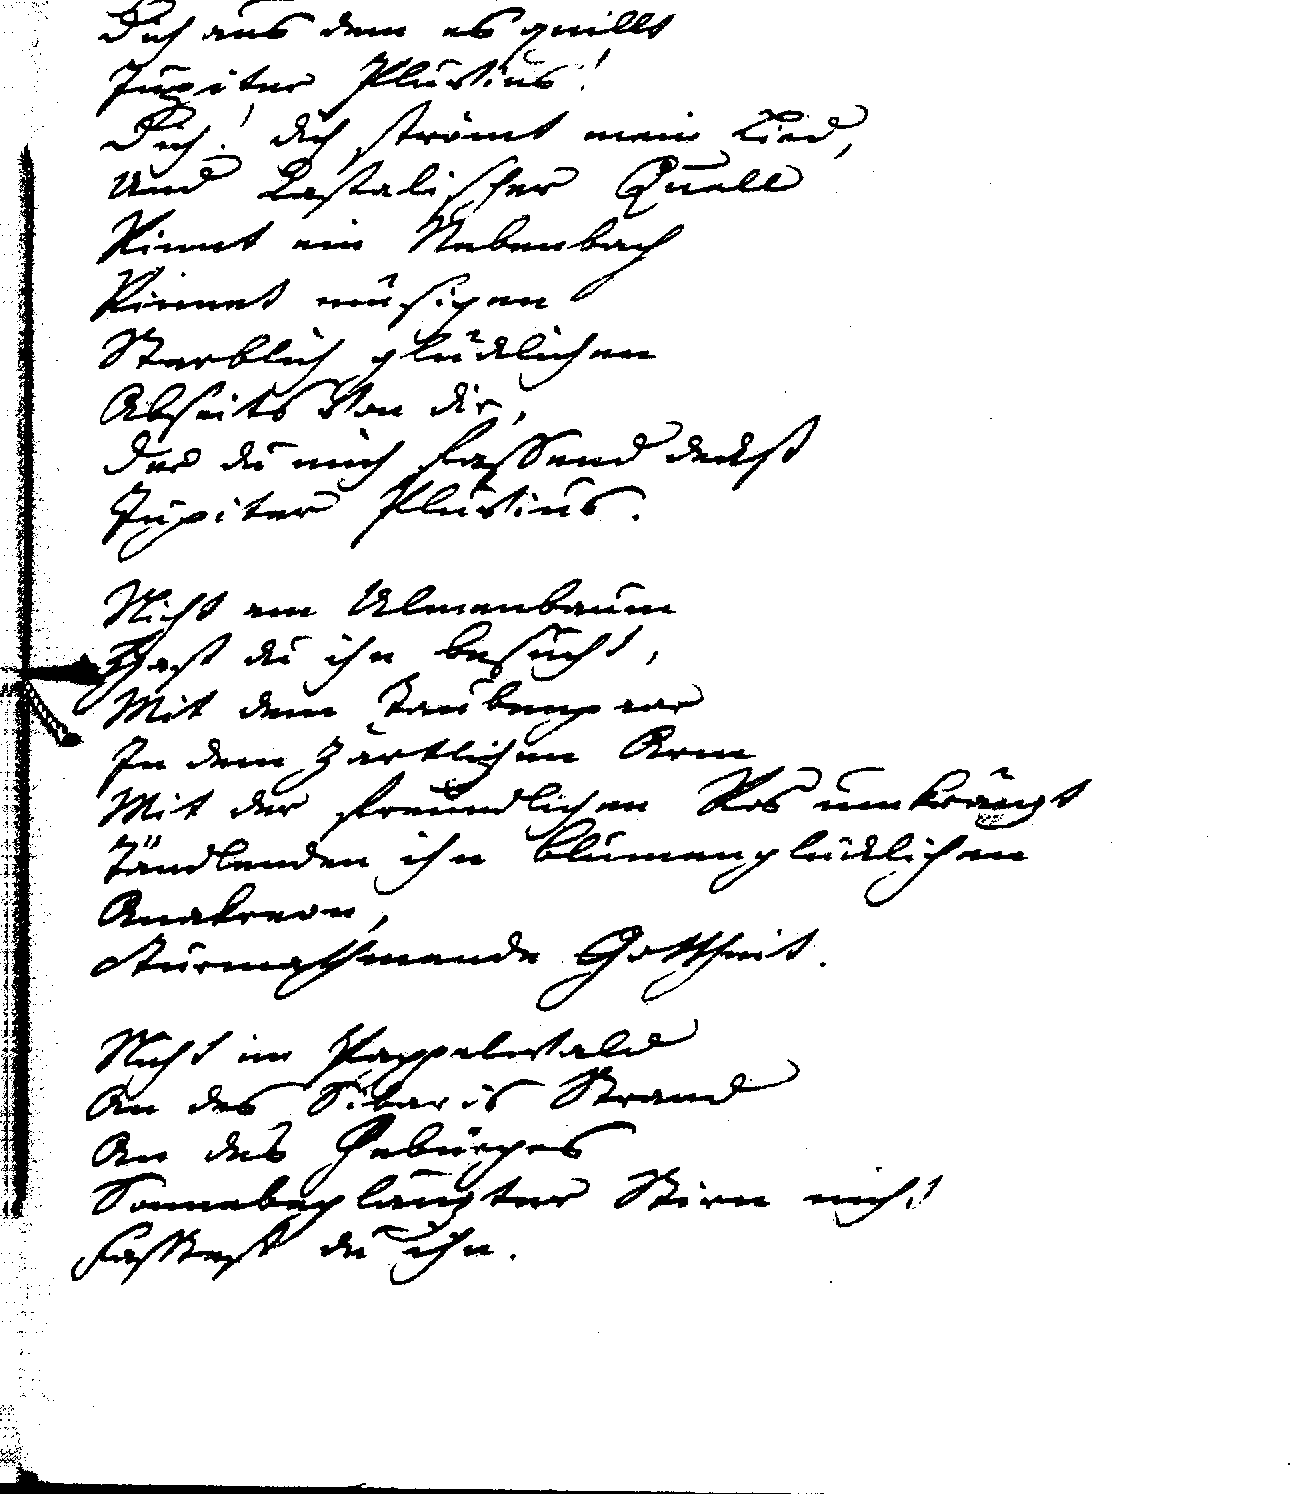 Dich aus dem es quillt
Jupiter Pluvius!
Dich! dich strömt mein Lied,
Und Castalischer Quell
Rinnt ein Nebenbach
Rinnet müsigen
Sterblich glücklichen
Abseits von dir,
Der du mich fassend deckst
Jupiter Pluvius.
Nicht am Ulmenbaum
Hast du ihn besucht,
Mit dem Taubenpaar
In dem zärtlichen Arm
Mit der freundlichen Ros umkränzt
Tändlenden ihn blumenglücklichen
Anakreon,
Sturmathmende Gottheit.
Nicht im Pappelwald
An des Sibaris Strand
An des Gebürges
Sonnebeglänzter Stirn nicht
Fasstest du ihn.